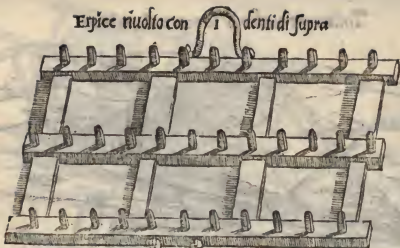 Erpice riuolto con I denti di supra